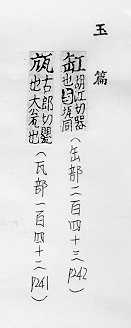 玉篇
缸 胡江切器也 同（缶部二百四十三 p242）
古郎切甖也大瓮也（瓦部二百四十二 p241）